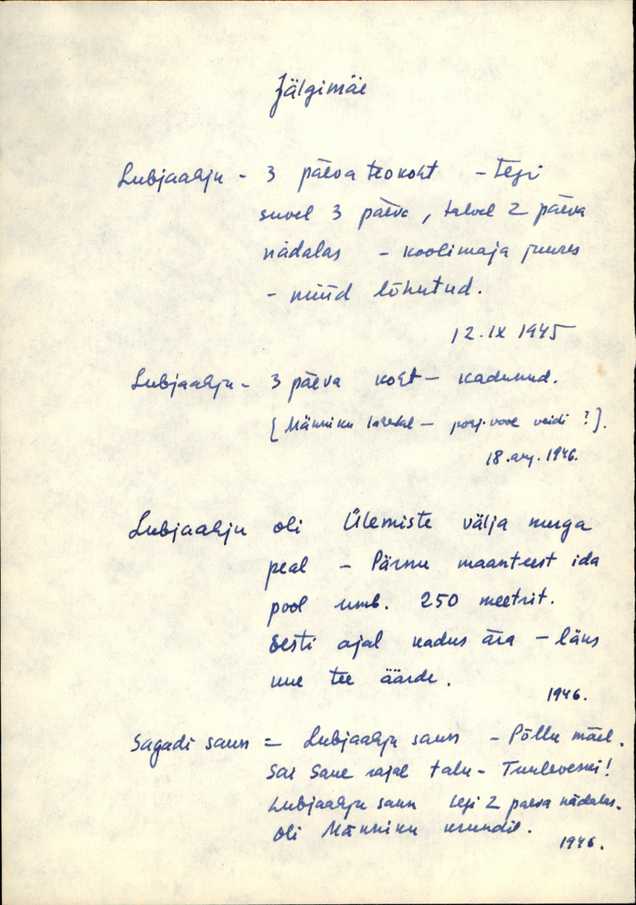 Jälgimäe
Lubjaahju - 3 päeva teokoht - Tegi
suvel 3 päeva, talvel 2 päeva
nädalas - koolimaja juures
- nüüd lõhutud.
12.IX 1945
Lubjaahju - 3 päeva koht - kadunud.
[Männiku - põhj. pool veidi ?].
18. aug. 1946.
Lubjaahju oli Ülemiste välja nurga
peal - Pärnu maanteest ida
pool umb. 250 meetrit.
Eesti ajal kadus ära - läks
uue tee äärde.
1946.
Sagadi saun = Lubjaahju saun - Põllu mäel.
Sai Saue rajal talu - Tuuleveski!
Lubjaahju saun tegi 2 päeva nädalas.
Oli Männiku krundil.
1946.